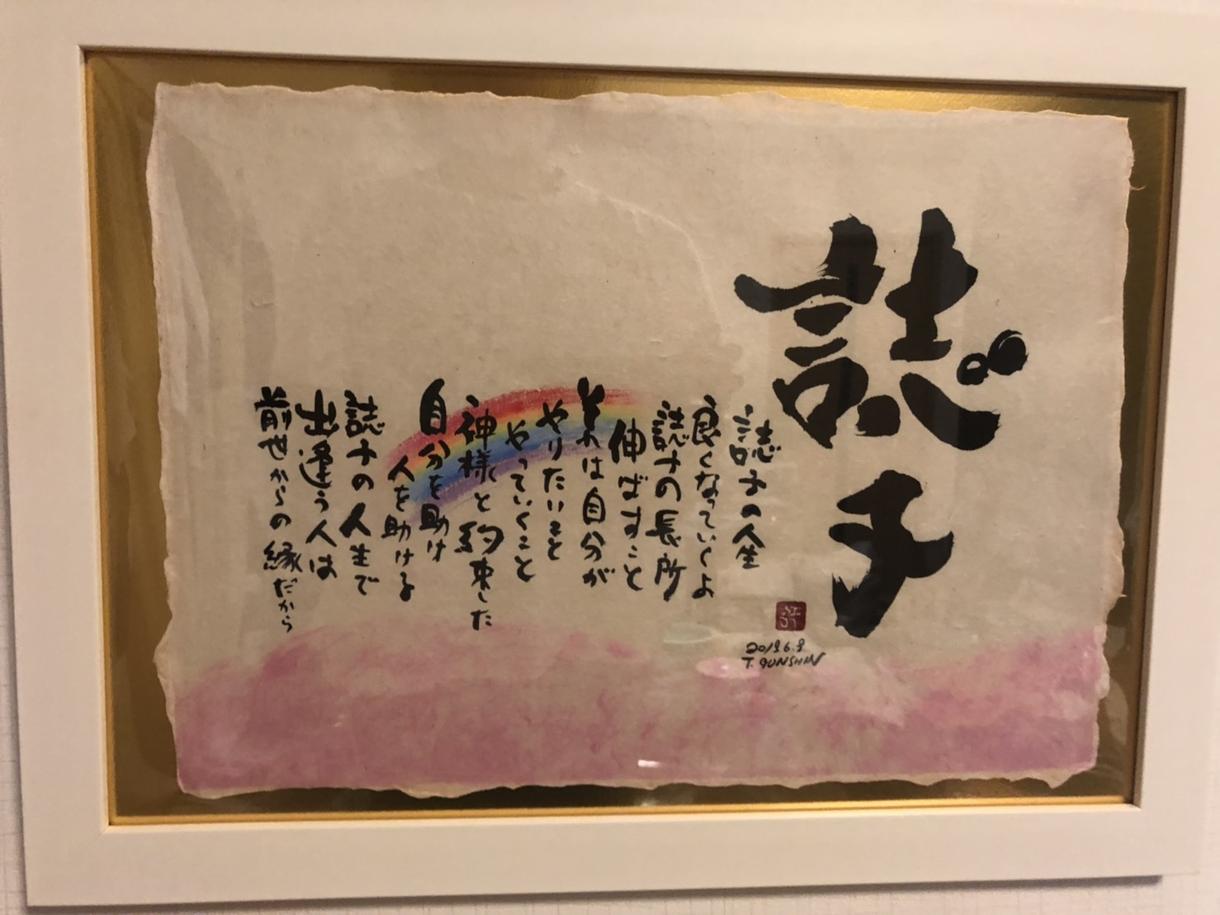 誌子
誌子の人生
良くなっていくよ
誌子の長所
伸ばすこと
美れは自分が
やりたいこと
やっていくこと
神様と約束した
自分を助け
人を助ける
誌子の人生で
出逢う人は
前世からの縁だから
T. GUNSHIN